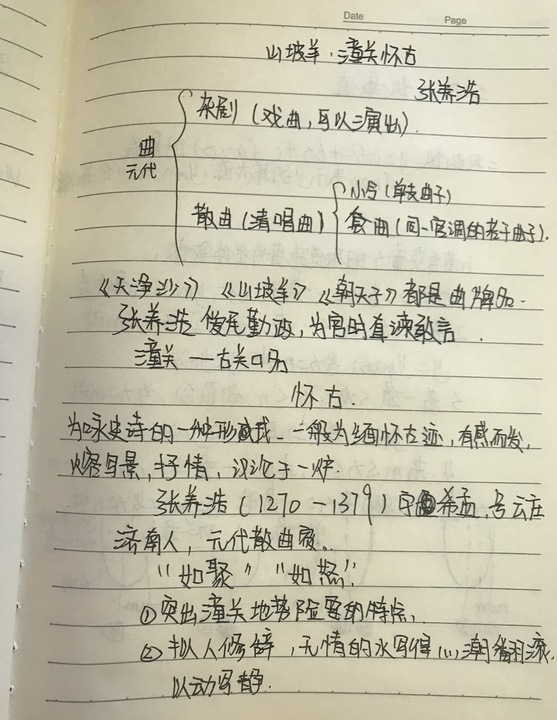 Date Page
山坡羊·潼关怀古
张养浩
曲
元代
杂剧（戏曲，可以演出）.
散曲（清唱曲）
小令（单支曲子）
套曲（同一宫调的若干曲子）.
《天净沙》《山坡羊》《朝天子》都是曲牌名.
张养浩 俊尾勤政，为官时直谏敢言.
潼关 — 古关口名
怀古.
为咏史诗的一种形式. 一般为缅怀古迹，有感而发，
熔写景，抒情，议论于一炉.
张养浩（1270－1379）字希孟，号云庄
济南人，元代散曲家。
“如聚”“如怒”.
①突出潼关地势险要的特点，
②拟人修辞，无情的水写得心潮翻滚.
以动写静.